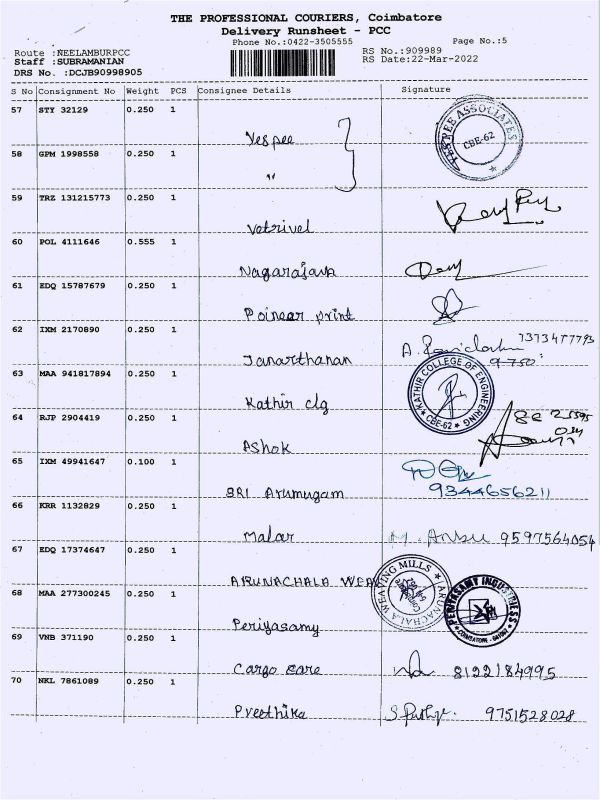 THE PROFESSIONAL COURIERS, Coimbatore
Delivery Runsheet - PCC
Phone No.:0422-3505555
Page No.:5
Route :NEELAMBURPCC
Staff :SUBRAMANIAN
DRS No. :DCJB90998905
RS No.:909989
RS Date:22-Mar-2022
S No Consignment No Weight PCS Consignee Details Signature
57 STY 32129 0.250 1
Yespee
ASSOCIATES CBE-62
58 GPM 1998558 0.250 1
"
59 TRZ 131215773 0.250 1
Vetrivel
60 POL 4111646 0.555 1
Nagarajava
61 EDQ 15787679 0.250 1
Poineer print
62 IXM 2170890 0.250 1
Janarthanan
63 MAA 941817894 0.250 1
Kathir clg
KATHIR COLLEGE OF ENGINEERING CBE-62
64 RJP 2904419 0.250 1
Ashok
65 IXM 49941647 0.100 1
SRI Arumugam 9344656211
66 KRR 1132829 0.250 1
Malar 9597564054
67 EDQ 17374647 0.250 1
ARUNACHALA WEA
ARUNACHALA WEAVING MILLS
68 MAA 277300245 0.250 1
Periyasamy
PERIYASAMY INDUSTRIESS
69 VNB 371190 0.250 1
Cargo care 8122184995
70 NKL 7861089 0.250 1
Preethika 9751528028